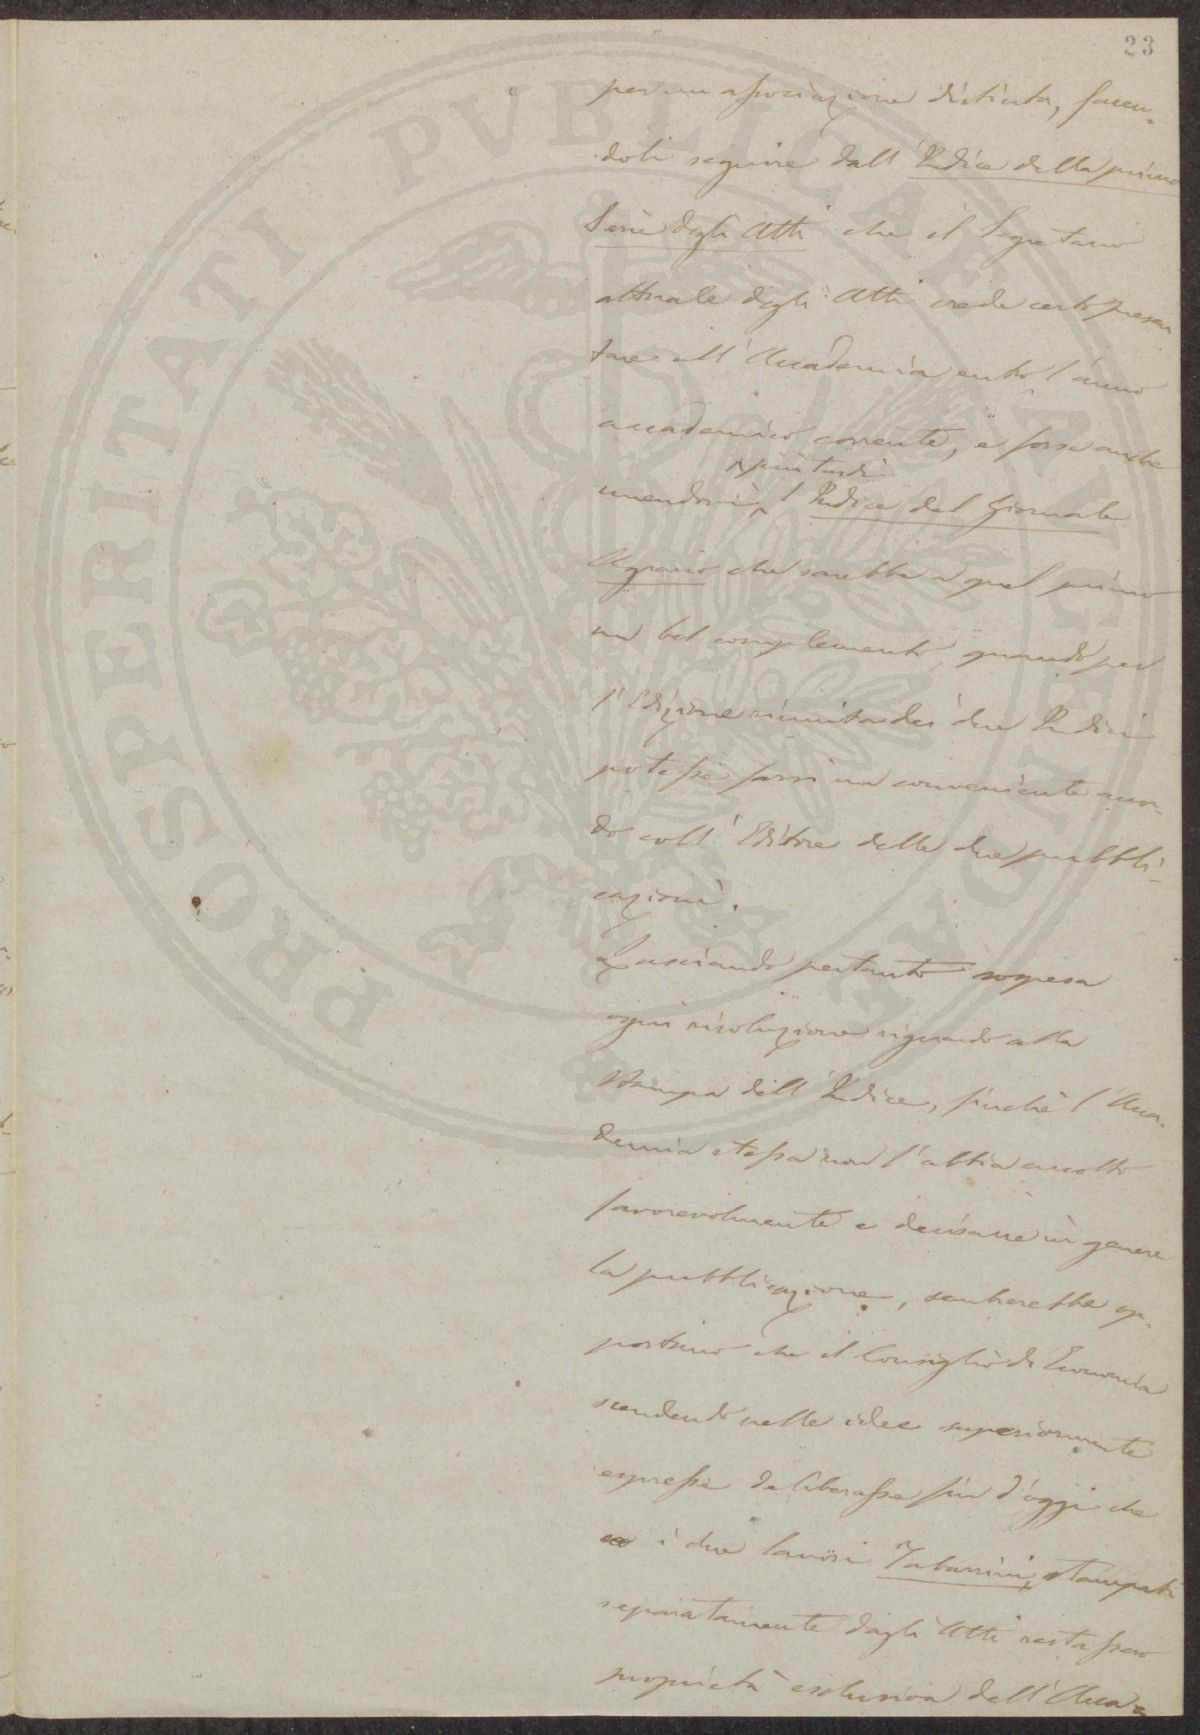 23
per un associazione distinta, facen-
doli seguire dall'Indice della prima
Serie degli Atti che il Segretario
attuale degli Atti crede certo presen
tare all'Accademia entro l'anno
accademico corrente, e forse anche
più tardi
unendovi l'Indice del Giornale
Agrario che sarebbe a quel primo
un bel complemento, quando per
l'Edizione riunita dei due Indici
potesse farsi un conveniente accor-
do coll'Editore delle due pubbli-
cazioni.
Lasciando pertanto sospesa
ogni risoluzione riguardo alla
stampa dell'Indice, finchè l'Acca-
demia stessa non l'abbia accolto
favorevolmente e decisane in genere
la pubblicazione, sembrerebbe op-
portuno che il Consiglio di Economia
scendendo nelle idee superiormente
espresse deliberasse fin d'oggi che
i due lavori Tabarrini, stampati
separatamente dagli Atti restassero
proprietà esclusiva dell'Acca-
PROSPERITATI PVBLICAE AVGENDAE